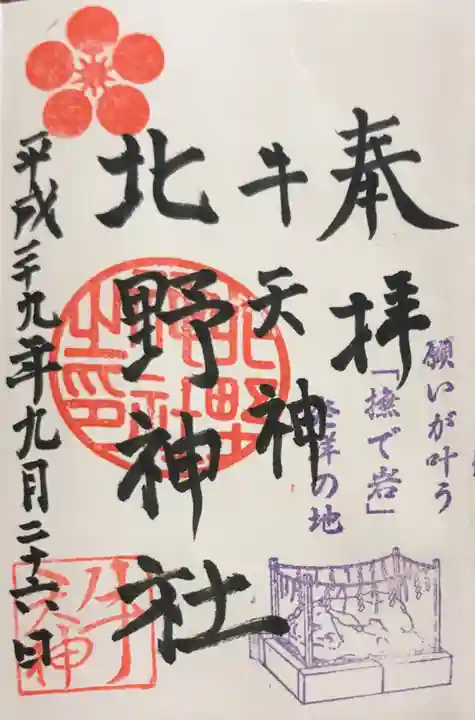 奉拝
願いが叶う
「撫で岩」
発祥の地
牛天神
北野神社
北野神社之印
平成二十九年九月二十六日
牛天神